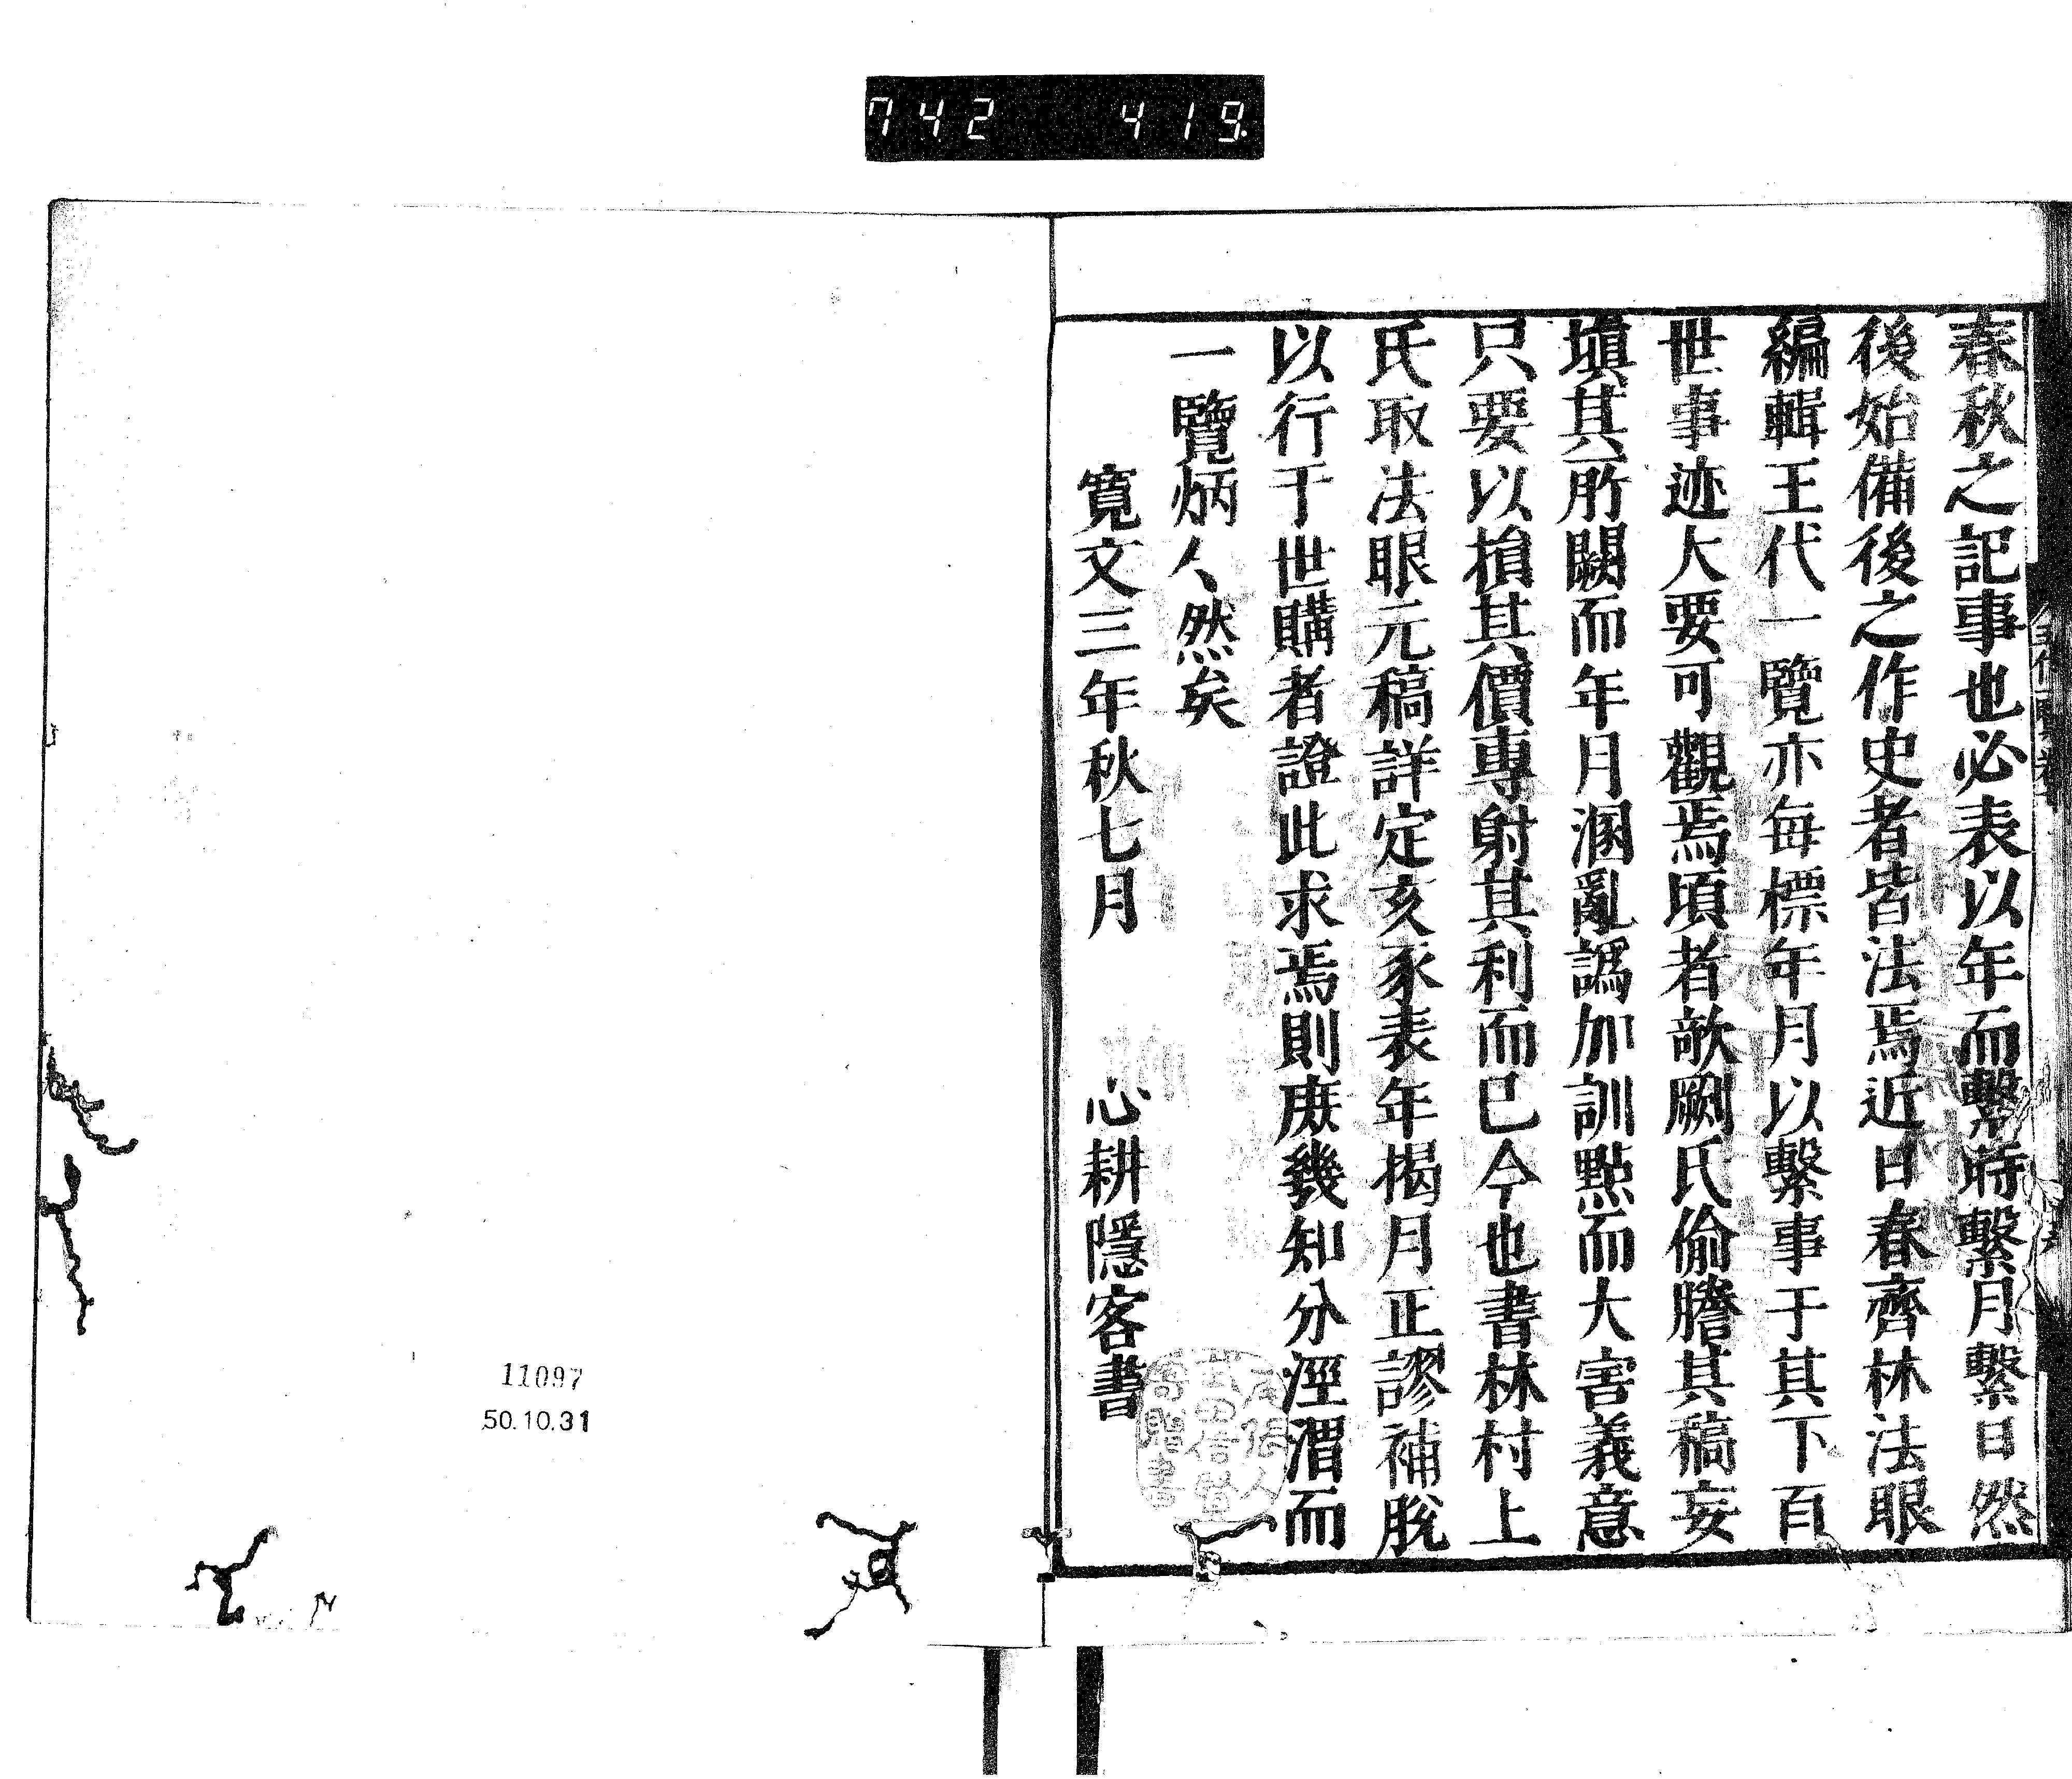 742 419.
春秋之記事也必表以年而繫時繫月繫日然
後始備後之作史者皆法焉近日春齊林法眼
編輯王代一覽亦每標年月以繫事于其下百
世事迹大要可觀焉頃者歒劂氏偷謄其稿妄
塡其所闕而年月溷亂譌加訓點而大害義意
只要以損其價專射其利而已今也書林村上
氏取法眼元稿詳定亥豕表年揭月正謬補脫
以行于世購者證此求焉則庶幾知分涇渭而
一覽炳〻然矣
寬文三年秋七月 心耕隱客書
11097
50.10.31